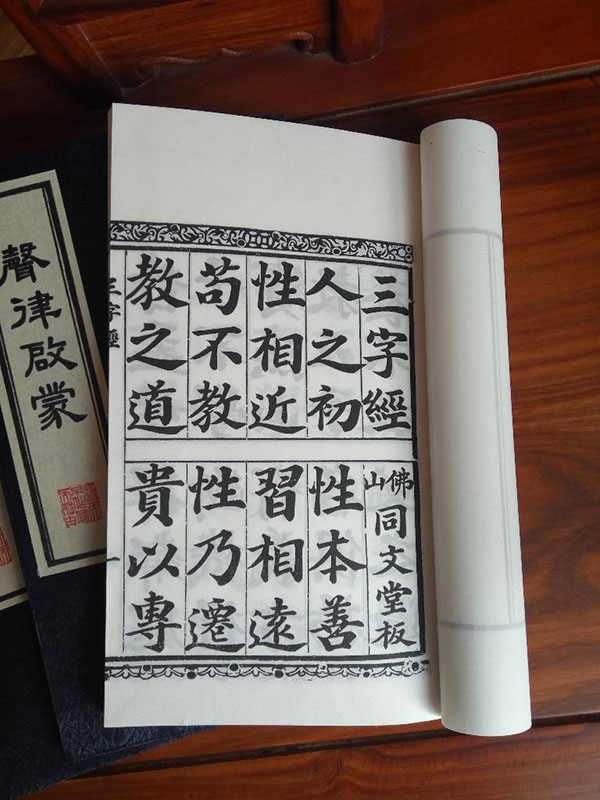 三字經
佛山同文堂板
人之初
性本善
性相近
習相遠
苟不教
性乃遷
教之道
貴以專
三字經
一
聲律啟蒙